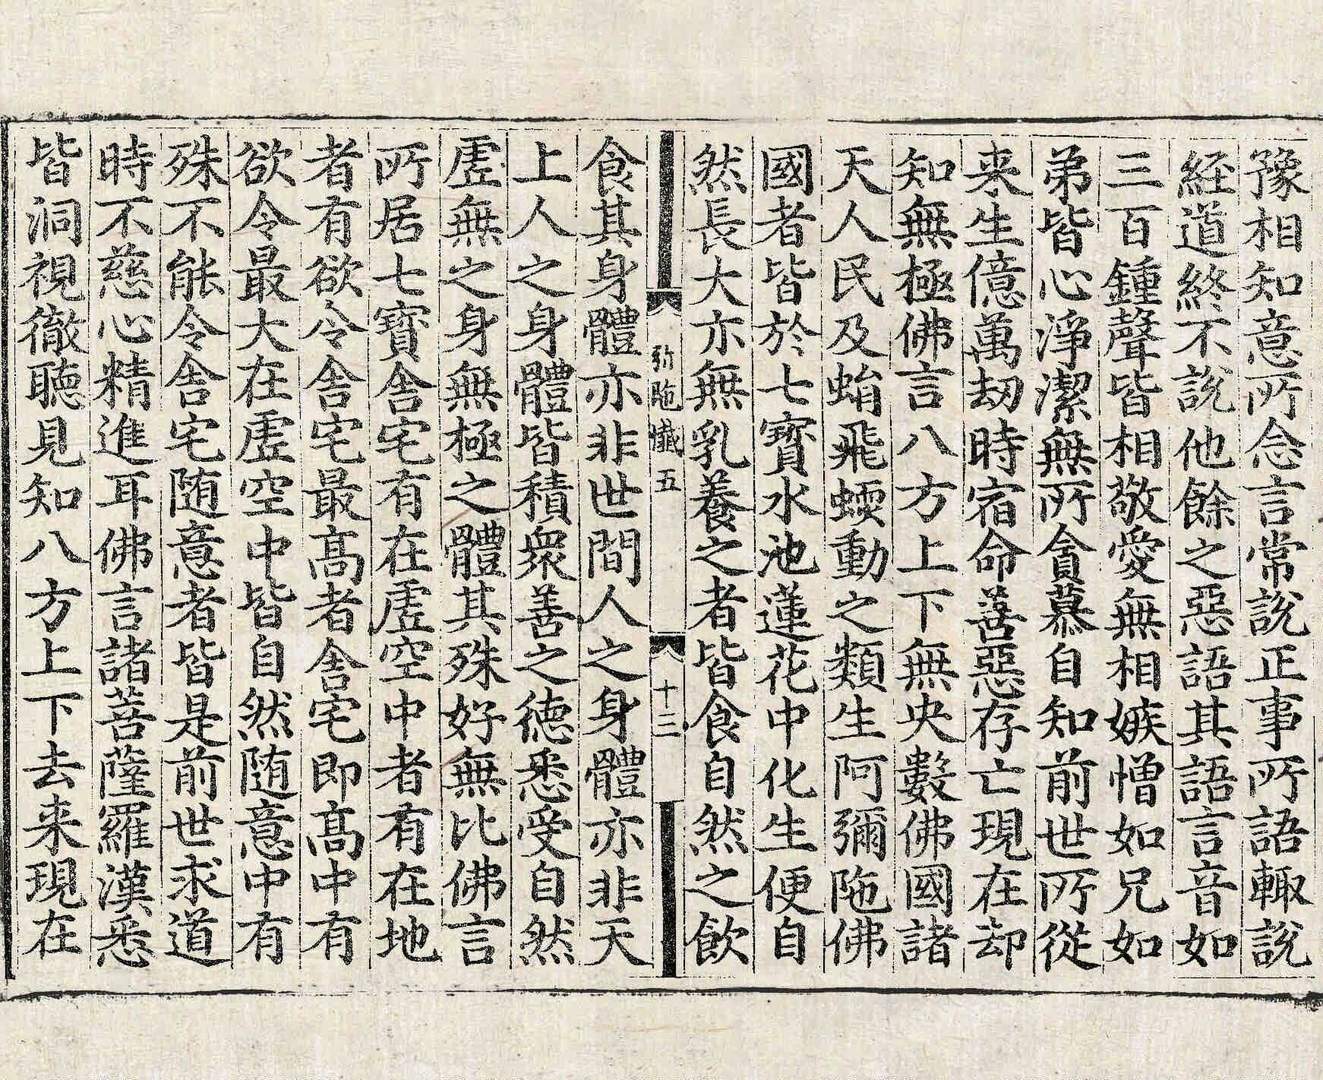 豫相知意所念言常說正事所語輙說
經道終不說他餘之惡語其語言音如
三百鍾聲皆相敬愛無相嫉憎如兄如
弟皆心淨潔無所貪慕自知前世所從
来生億萬劫時宿命善惡存亡現在却
知無極佛言八方上下無央數佛國諸
天人民及蜎飛蝡動之類生阿彌陁佛
國者皆於七寳水池蓮花中化生便自
然長大亦無乳養之者皆食自然之飲
弥陁懺五　十三
食其身體亦非世間人之身體亦非天
上人之身體皆積衆善之徳悉受自然
虛無之身無極之體其殊好無比佛言
所居七寳舎宅有在虛空中者有在地
者有欲令舎宅最髙者舎宅即髙中有
欲令最大在虛空中皆自然随意中有
殊不能令舎宅随意者皆是前世求道
時不慈心精進耳佛言諸菩薩羅漢悉
皆洞視徹聽見知八方上下去来現在